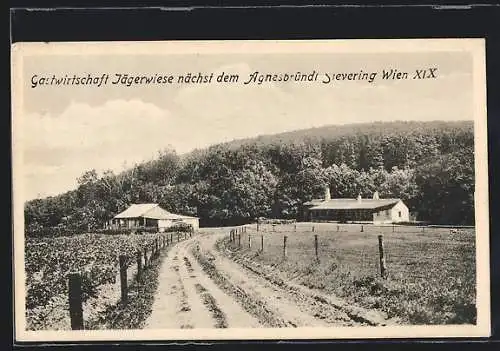 Gastwirtschaft Jägerwiese nächst dem Agnesbründl Sievering Wien XIX